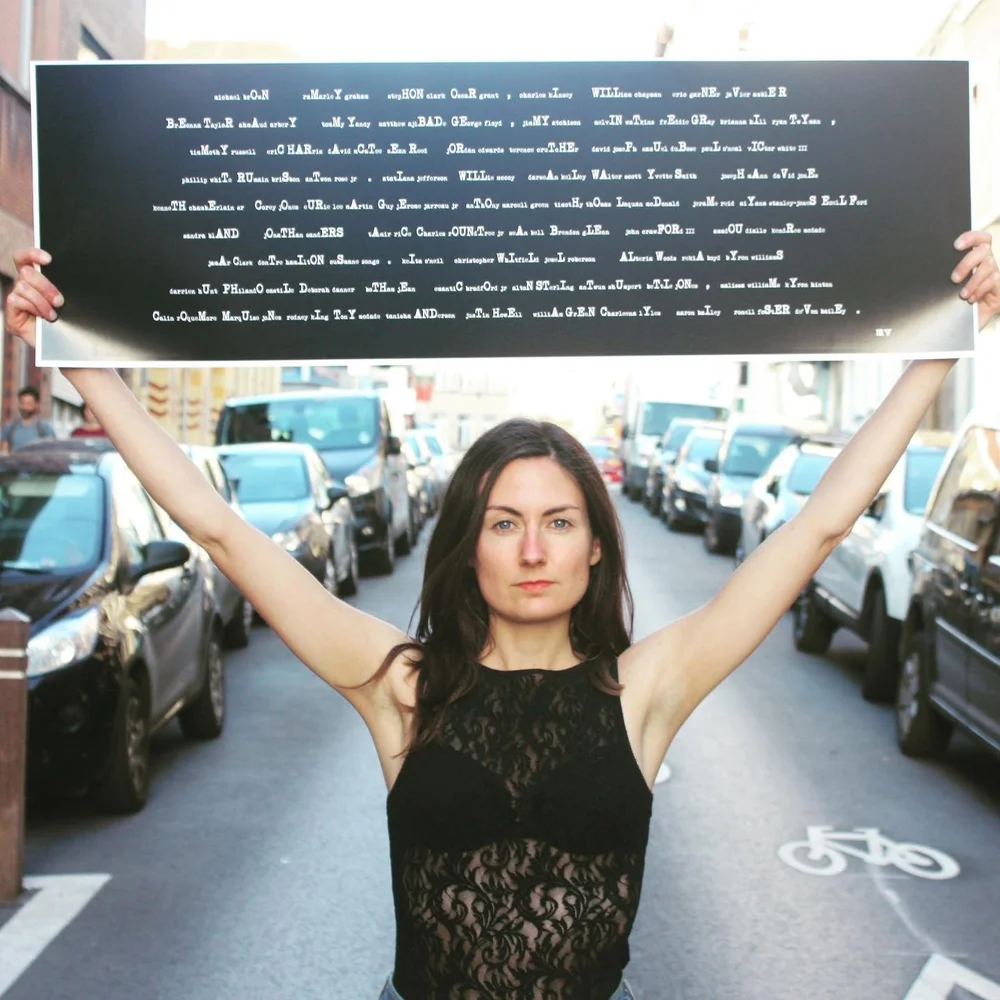 michael brOwN raMarleY graham stepHON clark OscaR grant , charles kInsey WILLiam chapman eric garNEr jaVier amblER
BrEonna TayloR ahmAud arberY tonMy Yancy matthew ajiBADe GEorge floyd , jimMY atchison melvIN waTkins frEddie GRay brianna hIll ryan TwYman ,
timMothY russell eriC HARris dAvid mCaTee sEan Reed jORdan edwards terence cruTcHEr david josePh samUel duBose pauL o'neal vICtor white III
phillip whiTe RUmain briSbon anTwon rose jr . atatIana jefferson WILLie mccoy darneAn baiLey WAlter scott Yvette Smith josepH mAnn daVid joneEs
kenneTH chambErlain sr Corey jOnes eURie lee mArtin Guy jErome jarreau jr anThOny marcell green timotHy thOmas Laquan mcDonald jeraMe reid aiYana stanley-joneS EzelL Ford
sandra blAND jOnaTHan sandERS tAmir riCe Charles rOUNdTree jr seAn bell Brendon gLEnn john crawFORd III amadOU diallo kendRec mcdade
jamAr Clark donTre hamIltON euSanne zongo . keIta o'neil christopher WhItfieLd jameL roberson ALteria Woods rekiA boyd bYron williamS
darrien hUnt PHilandO castiLe Deborah danner boTHam jEan cameriC bradfOrd jr altoN STerlIng anTwun shUmpert boTtLe jONes , malissa williaMs kYron hinton
Calin rOqueMore MarqUise joNes rodney kIng TonY mcdade tanisha ANDerson jusTin HowEll williAm GrEeN Charleena lYles aaron baIley ronell foStER deVon baiLEy .
mv